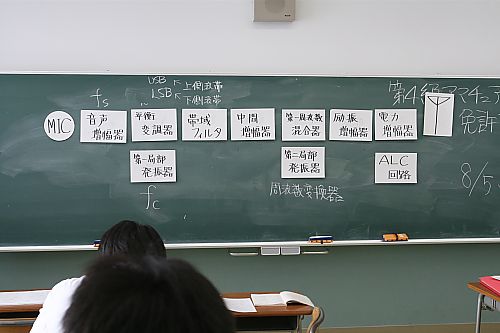 USB 上側波帯
LSB 下側波帯
第4級アマチュア
免許
8/5
fs
MIC
音声
増幅器
平衡
変調器
帯域
フィルタ
中間
増幅器
第一周波数
混合器
励振
増幅器
電力
増幅器
第一局部
発振器
第二局部
発振器
ALC
回路
fc
周波数変換器